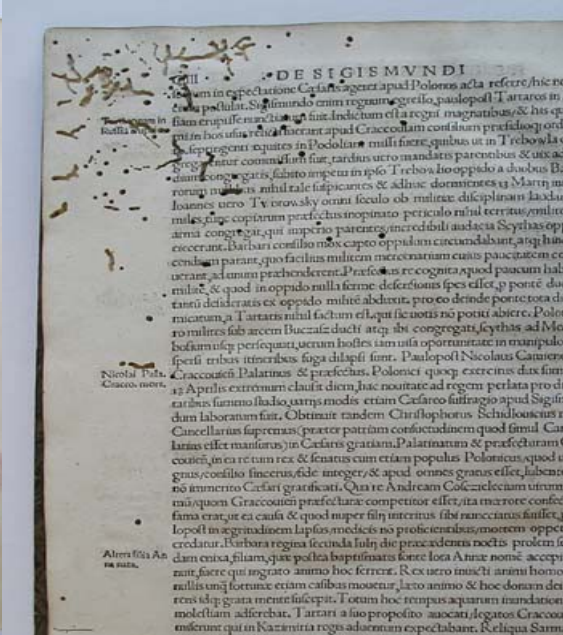 DE SIGISMVNDI
in expectatione Cæsaris ageret apud Polonos acta referre/hic ne
postulat. Sigismundo enim regnum egresso, paulopost Tartaros in
siam erupisse nunciatum fuit. Indictum est a regni magnatibus/& his qu
in hos usus relicti fuerant apud Craccouiam consilium præsidioq; ord
septingenti equites in Podoliam missi fuere, quibus ut in Trebowla
commissum fuit, tardius uero mandatis parentibus & uix ac
congregatis, subito impetu in ipso Trebowlio oppido a duobus Ba
rorum nihil tale suspicantes & adhuc dormientes 13 Martij
Ioannes uero Tvorowsky omni seculo ob militiæ disciplinam laudan
miles, tunc copiarum præfectus inopinato periculo nihil territus/milite
arma congregat, qui imperio parentes/incredibili audacia Scythas opp
eiecerunt. Barbari consilio mox capto oppidum circumdabant, atq; hinc
cendium parant, quo facilius militem mercenarium cuius paucitatem co
uerant, ad unum præhenderent. Præfectus re cognita, quod paucum hab
milite, & quod in oppido nulla ferme defensionis spes esset, p ponte duc
tantu desideratis ex oppido milite abduxit. pro eo deinde ponte tota di
micatum, a Tartaris nihil factum est. qui sic uotis no potiti abiere. Polon
ro milites sub arcem Buczasz ducti atq; ibi congregati, scythas ad Mo
bosium usq; persequuti, uerum hostes iam uisa oportunitate in manipulo
spersi tribus itineribus fuga dilapsi sunt. Paulopost Nicolaus Camiene
Nicolai Pala.
Craccouien Palatinus & præfectus. Polonici quoq; exercitus dux sum
Cracco. mors.
12 Aprilis extremum clausit diem, hac nouitate ad regem perlata pro di
tatibus summo studio, uarijs modis etiam Cæsareo suffragio apud Sigisi
dum laboratum fuit. Obtinuit tandem Christophorus Schidlouicius r
Cancellarius supremus (præter patriam consuetudinem quod simul Can
larius esset mansurus) in Cæsaris gratiam. Palatinatum & præfecturam C
couien, in ea re tum rex & senatus cum etiam populus Polonicus, quod u
gnus/consilio sincerus/fide integer/& apud omnes gratus esset, lubente
no immerito Cæsari gratificati. Quare Andream
mu/quom Craccouien præfecturæ competitor esset, ita mœrore confec
fama erat, ut ea causa & quod nuper filij interitus sibi nunciatus fuisset,
lopost in ægritudinem lapsus/medicis no proficientibus/mortem oppet
credatur. Barbara regina secunda Iulij die præcædentis noctis prolem se
Altera filia An
dam enixa, filiam, quæ postea baptismatis fonte lota Annæ nome accepi
na nata.
nuit, fuere qui ingrato animo hoc ferrent. Rex uero inuicti animi homo
nullis unq; fortunæ etiam casibus mouetur, læto animo & hoc donum dei
rens idq; grata mente suscepit. Totum hoc tempus aquarum inundation
molestiam adferebat. Tartari a suo proposito auocati/legatos Craccou
miserunt qui in Kazimiria regis aduentum expectabant. Reliqua Sarm